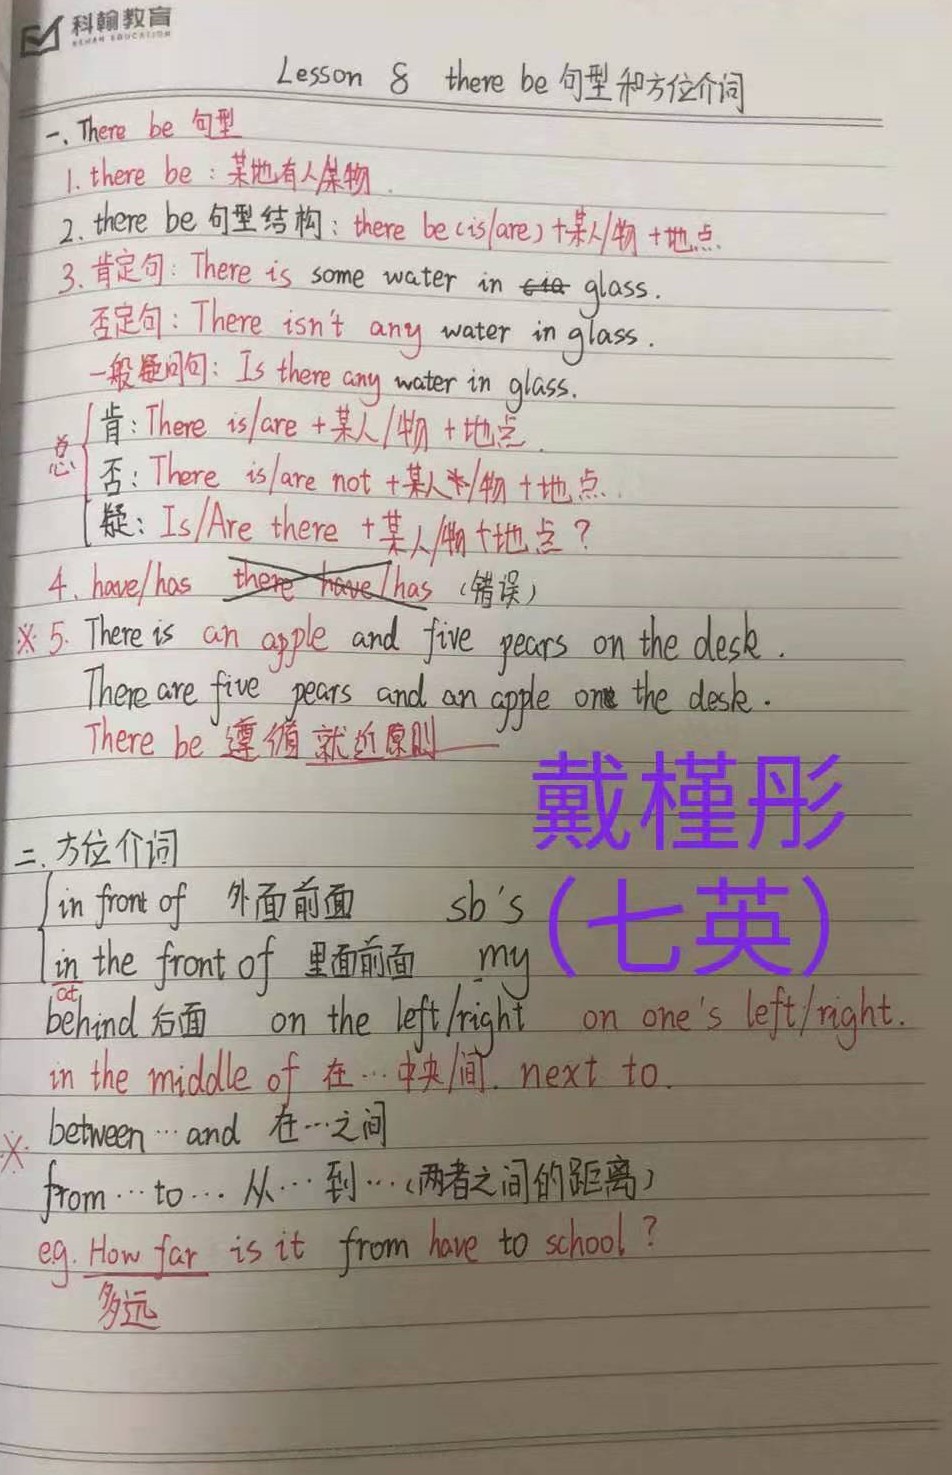 科翰教育
KEHAN EDUCATION
Lesson 8 there be 句型和方位介词
一、There be 句型
1. there be : 某地有人/某物.
2. there be 句型结构: there be (is/are) + 某人/物 + 地点.
3. 肯定句: There is some water in glass.
否定句: There isn't any water in glass.
一般疑问句: Is there any water in glass.
总
肯: There is/are + 某人/物 + 地点.
否: There is/are not + 某人/物 + 地点.
疑: Is/Are there + 某人/物 + 地点?
4. have/has there have/has (错误)
※ 5. There is an apple and five pears on the desk.
There are five pears and an apple on the desk.
There be 遵循就近原则
戴槿彤
(七英)
二、方位介词
in front of 外面前面 sb's
in the front of 里面前面 my
at
behind 后面 on the left/right on one's left/right.
in the middle of 在…中央/间. next to.
between … and 在…之间
※
from … to … 从…到…(两者之间的距离)
e.g. How far is it from have to school?
多远